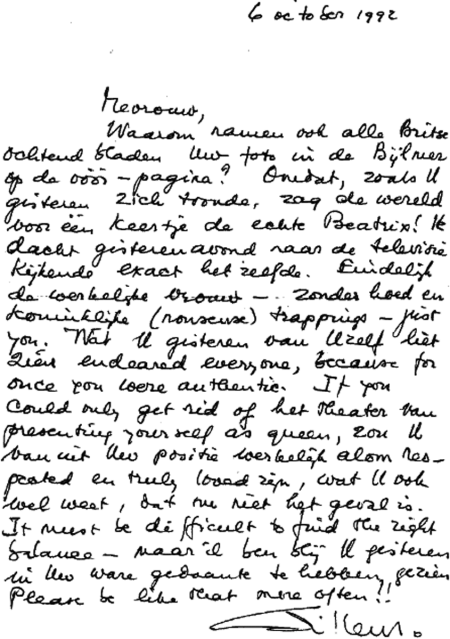 6 october 1992
Mevrouw,
Waarom namen ook alle Britse
ochtend bladen Uw foto in de Bijlmer
op de vóór-pagina? Omdat, zoals U
gisteren zich toonde, zag de wereld
voor één keertje de echte Beatrix! Ik
dacht gisterenavond naar de televisie
kijkende exact hetzelfde. Eindelijk
de werkelijke vrouw - zonder hoed en
koninklijke (nonsense) trappings - just
you. Wat U gisteren van Uzelf liet
zien endeared everyone, because for
once you were authentic. If you
could only get rid of het theater van
presenting yourself as queen, zou U
vanuit Uw positie werkelijk alom res-
pected en truly loved zijn, wat U ook
wel weet, dat nu niet het geval is.
It must be difficult to find the right
balance - maar ik ben blij U gisteren
in Uw ware gedaante te hebben gezien
Please be like that more often!!